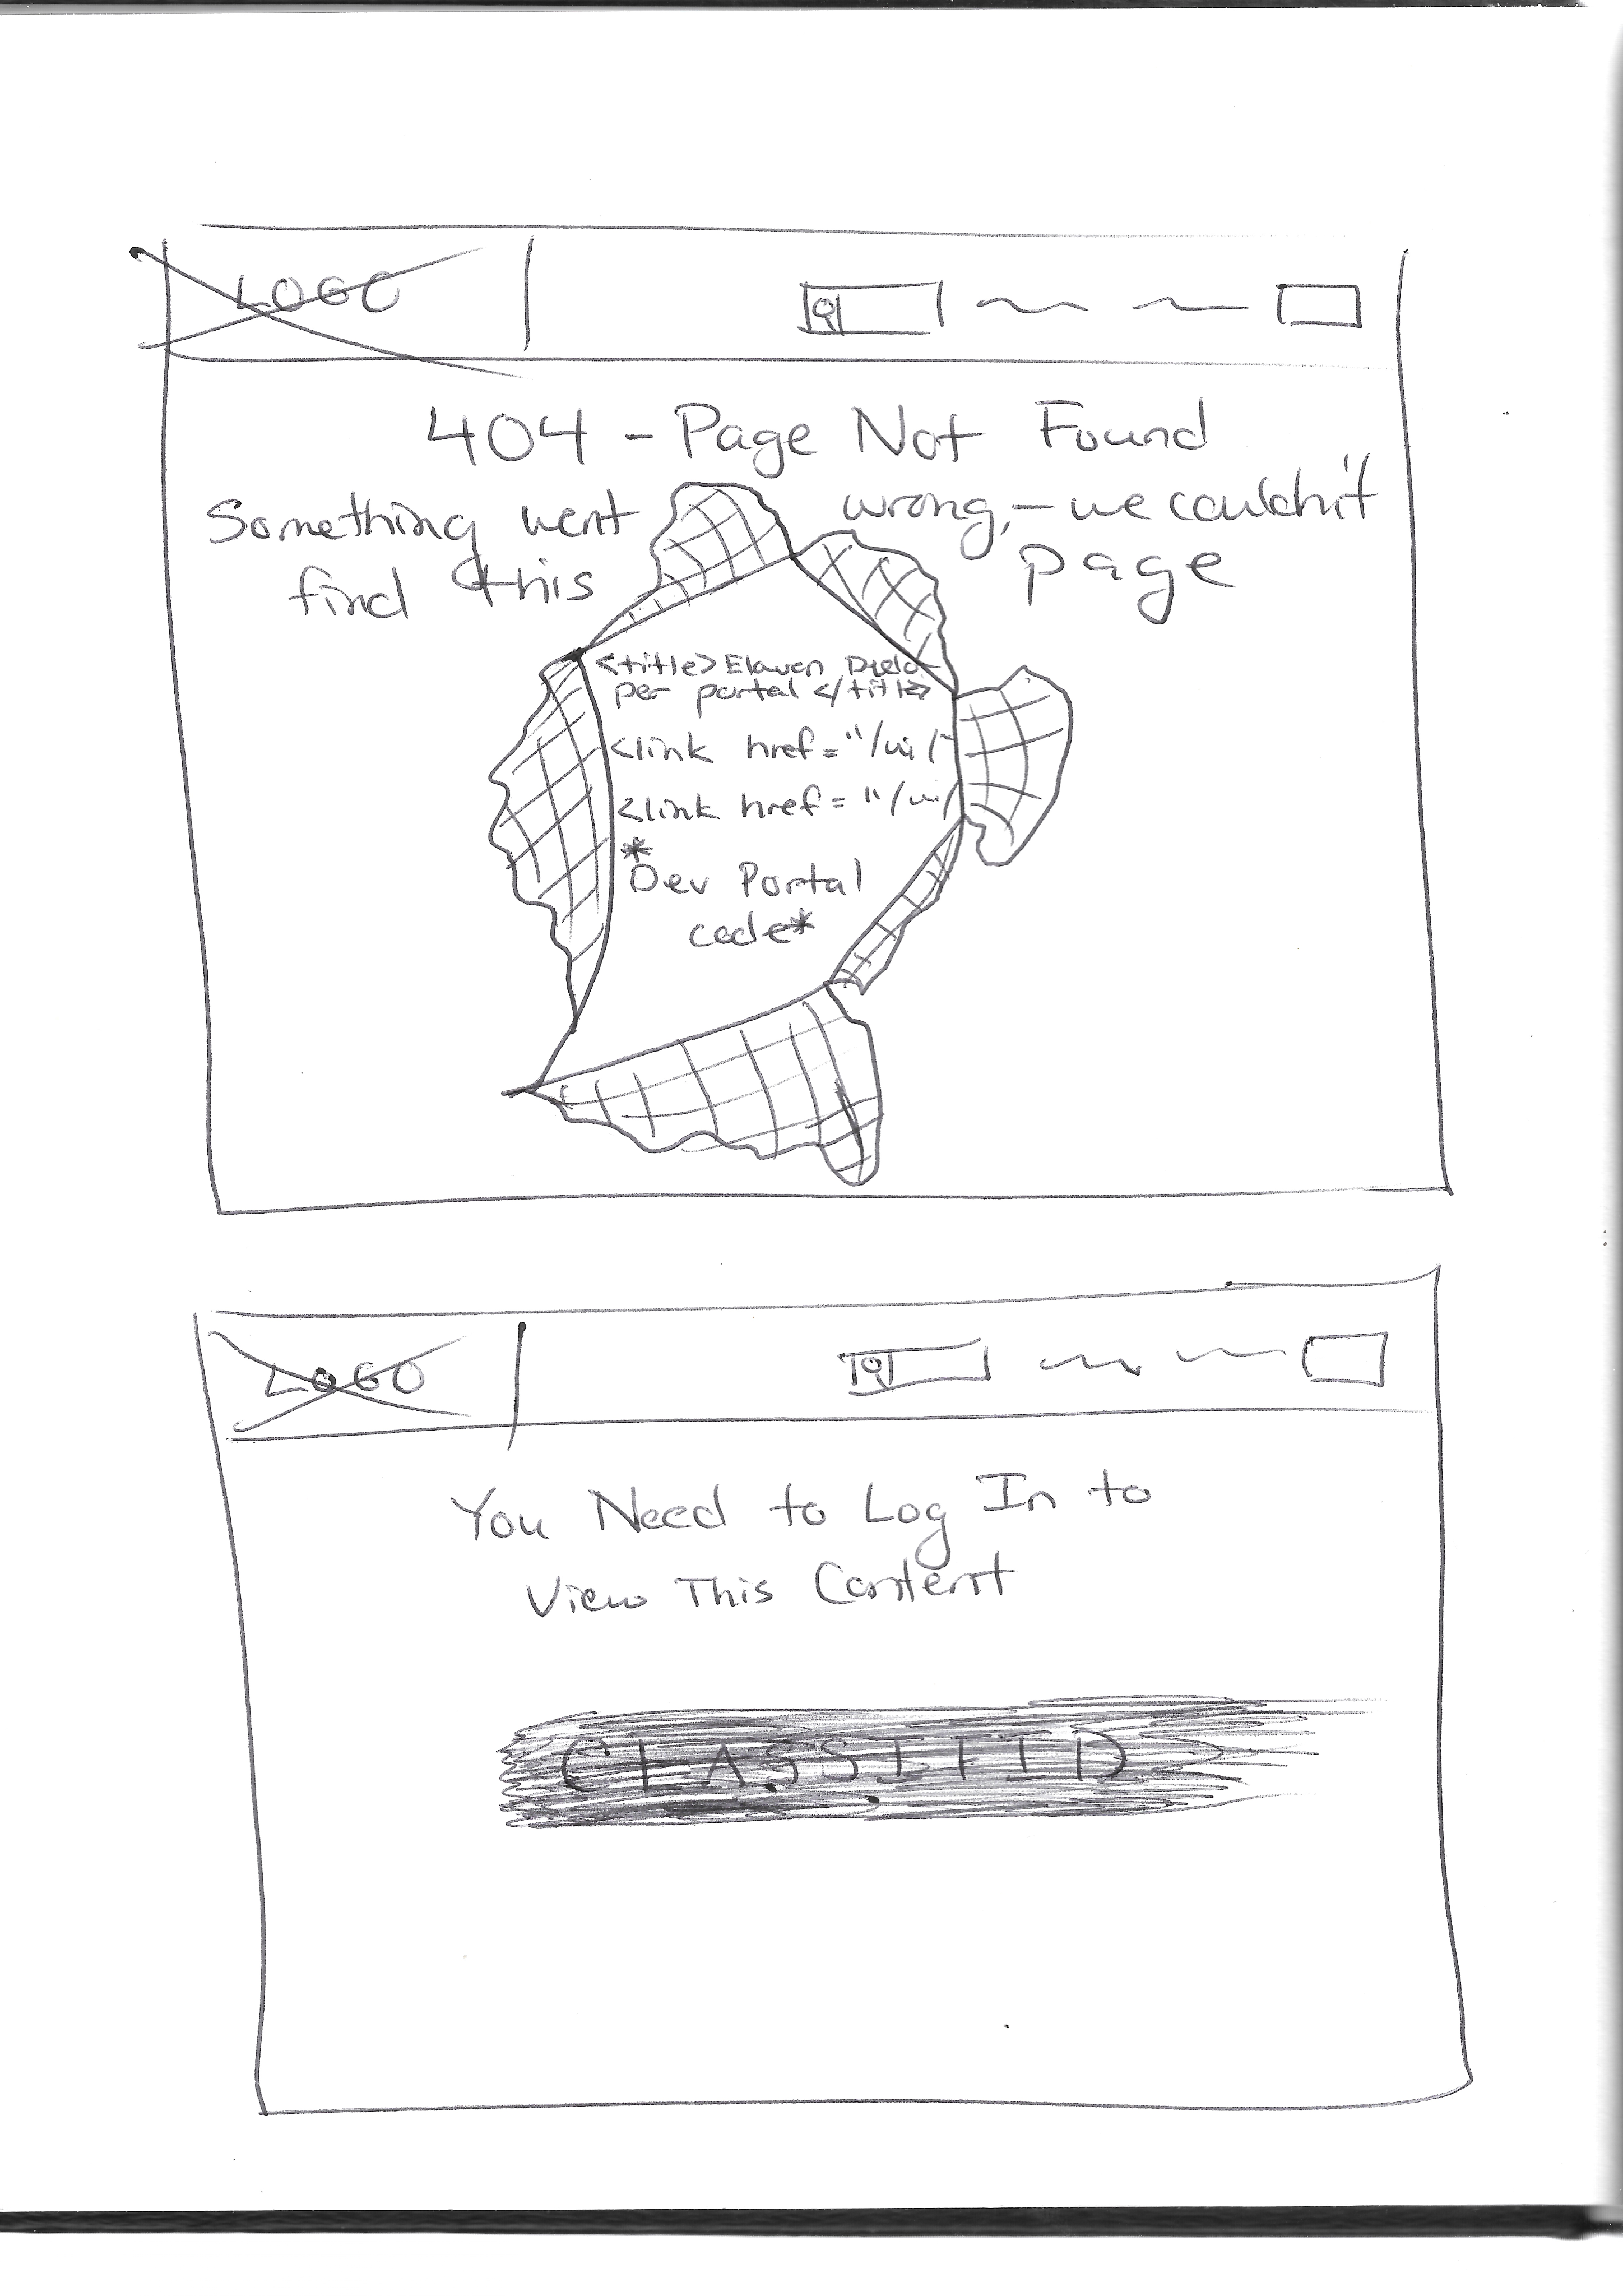 LOGO
404 - Page Not Found
Something went wrong, - we couldn't
find this page
<title> Elavon Develo
per portal </title>
<link href="/ui/
<link href="/ui/
*
Dev Portal
code*
LOGO
You Need to Log In to
View This Content
CLASSIFID